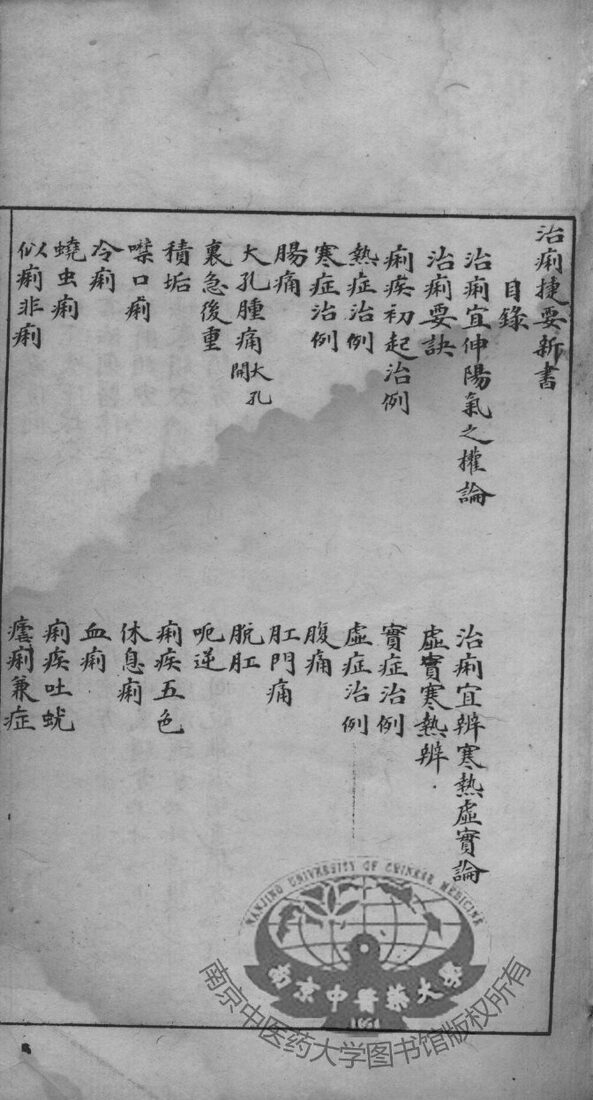 治痢捷要新書
目錄
治痢宜伸陽氣之權論
治痢宜辨寒熱虛實論
治痢要訣
虛實寒熱辨
痢疾初起治例
實症治例
熱症治例
虛症治例
寒症治例
腹痛
腸痛
肛門痛
大孔腫痛 大孔開
脫肛
裏急後重
呃逆
積垢
痢疾五色
噤口痢
休息痢
冷痢
血痢
蟯虫痢
痢疾吐蚘
似痢非痢
瘧痢兼症
NANJING UNIVERSITY OF CHINESE MEDICINE
南京中醫藥大學
1954
南京中医药大学图书馆版权所有